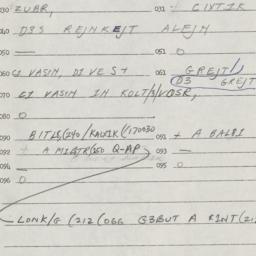 030 ZUBR, 031 + CIVTIK
040 D3S REJNKEJT ALEJM
050 — 051 0
060 CI VASIM, DI VES + 061 GREJT/
D3 GREJT
070 CI VASIM IN KOLT/S/VOSR,
080 0
090 BITLS(240/KAWIK(/170030 091 + A BALBI
092 + A MIQTR/150 Q-AP 093 —
094 — 095 0
096 0
LONK/G (212 (066 G3BUT A RINT(21